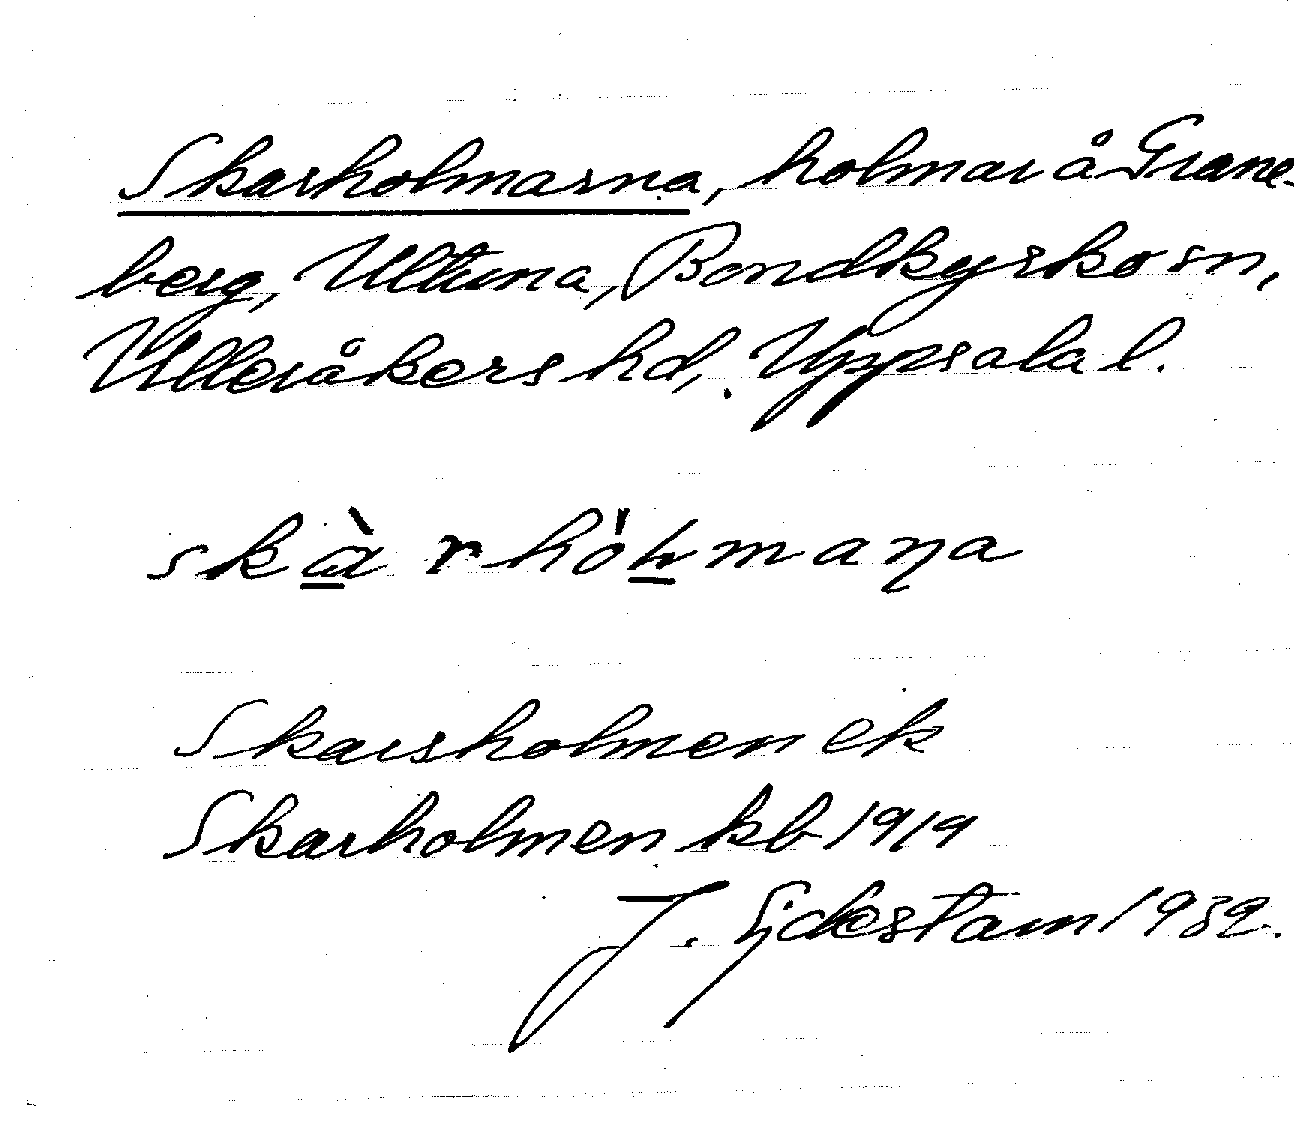 Skarholmarna, holmar å Grane-
berg, Ultuna, Bondkyrko sn,
Ulleråkers hd, Uppsala l.
skàrhòļmaņa
Skarsholmen ek
Skarholmen kb 1919
J. Edestam 1932.